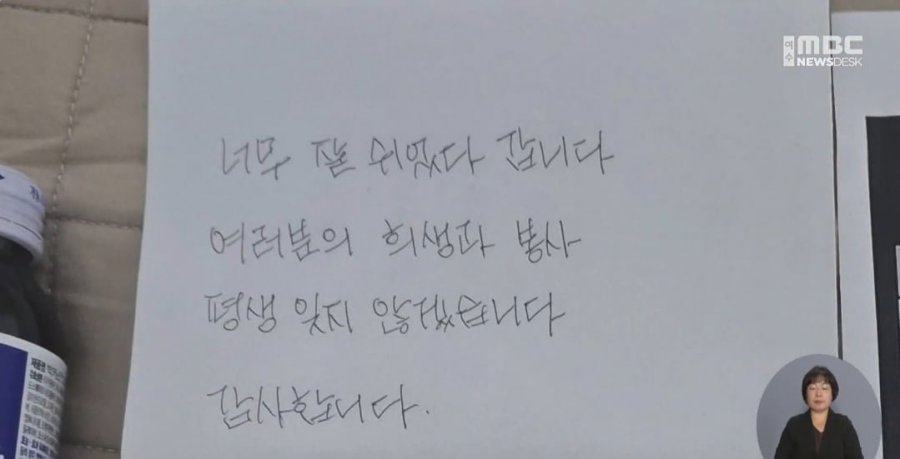 여수MBC
NEWSDESK
너무 잘 쉬었다 갑니다
여러분의 희생과 봉사
평생 잊지 않겠습니다
감사합니다.